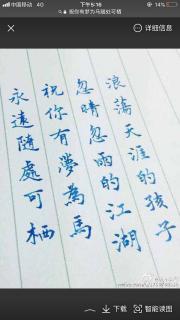 中国移动 4G
下午5:16
祝你有梦为马随处可栖
详细信息
浪荡天涯的孩子
忽晴忽雨的江湖
祝你有夢為馬
永遠隨處可栖
下载
智能读图